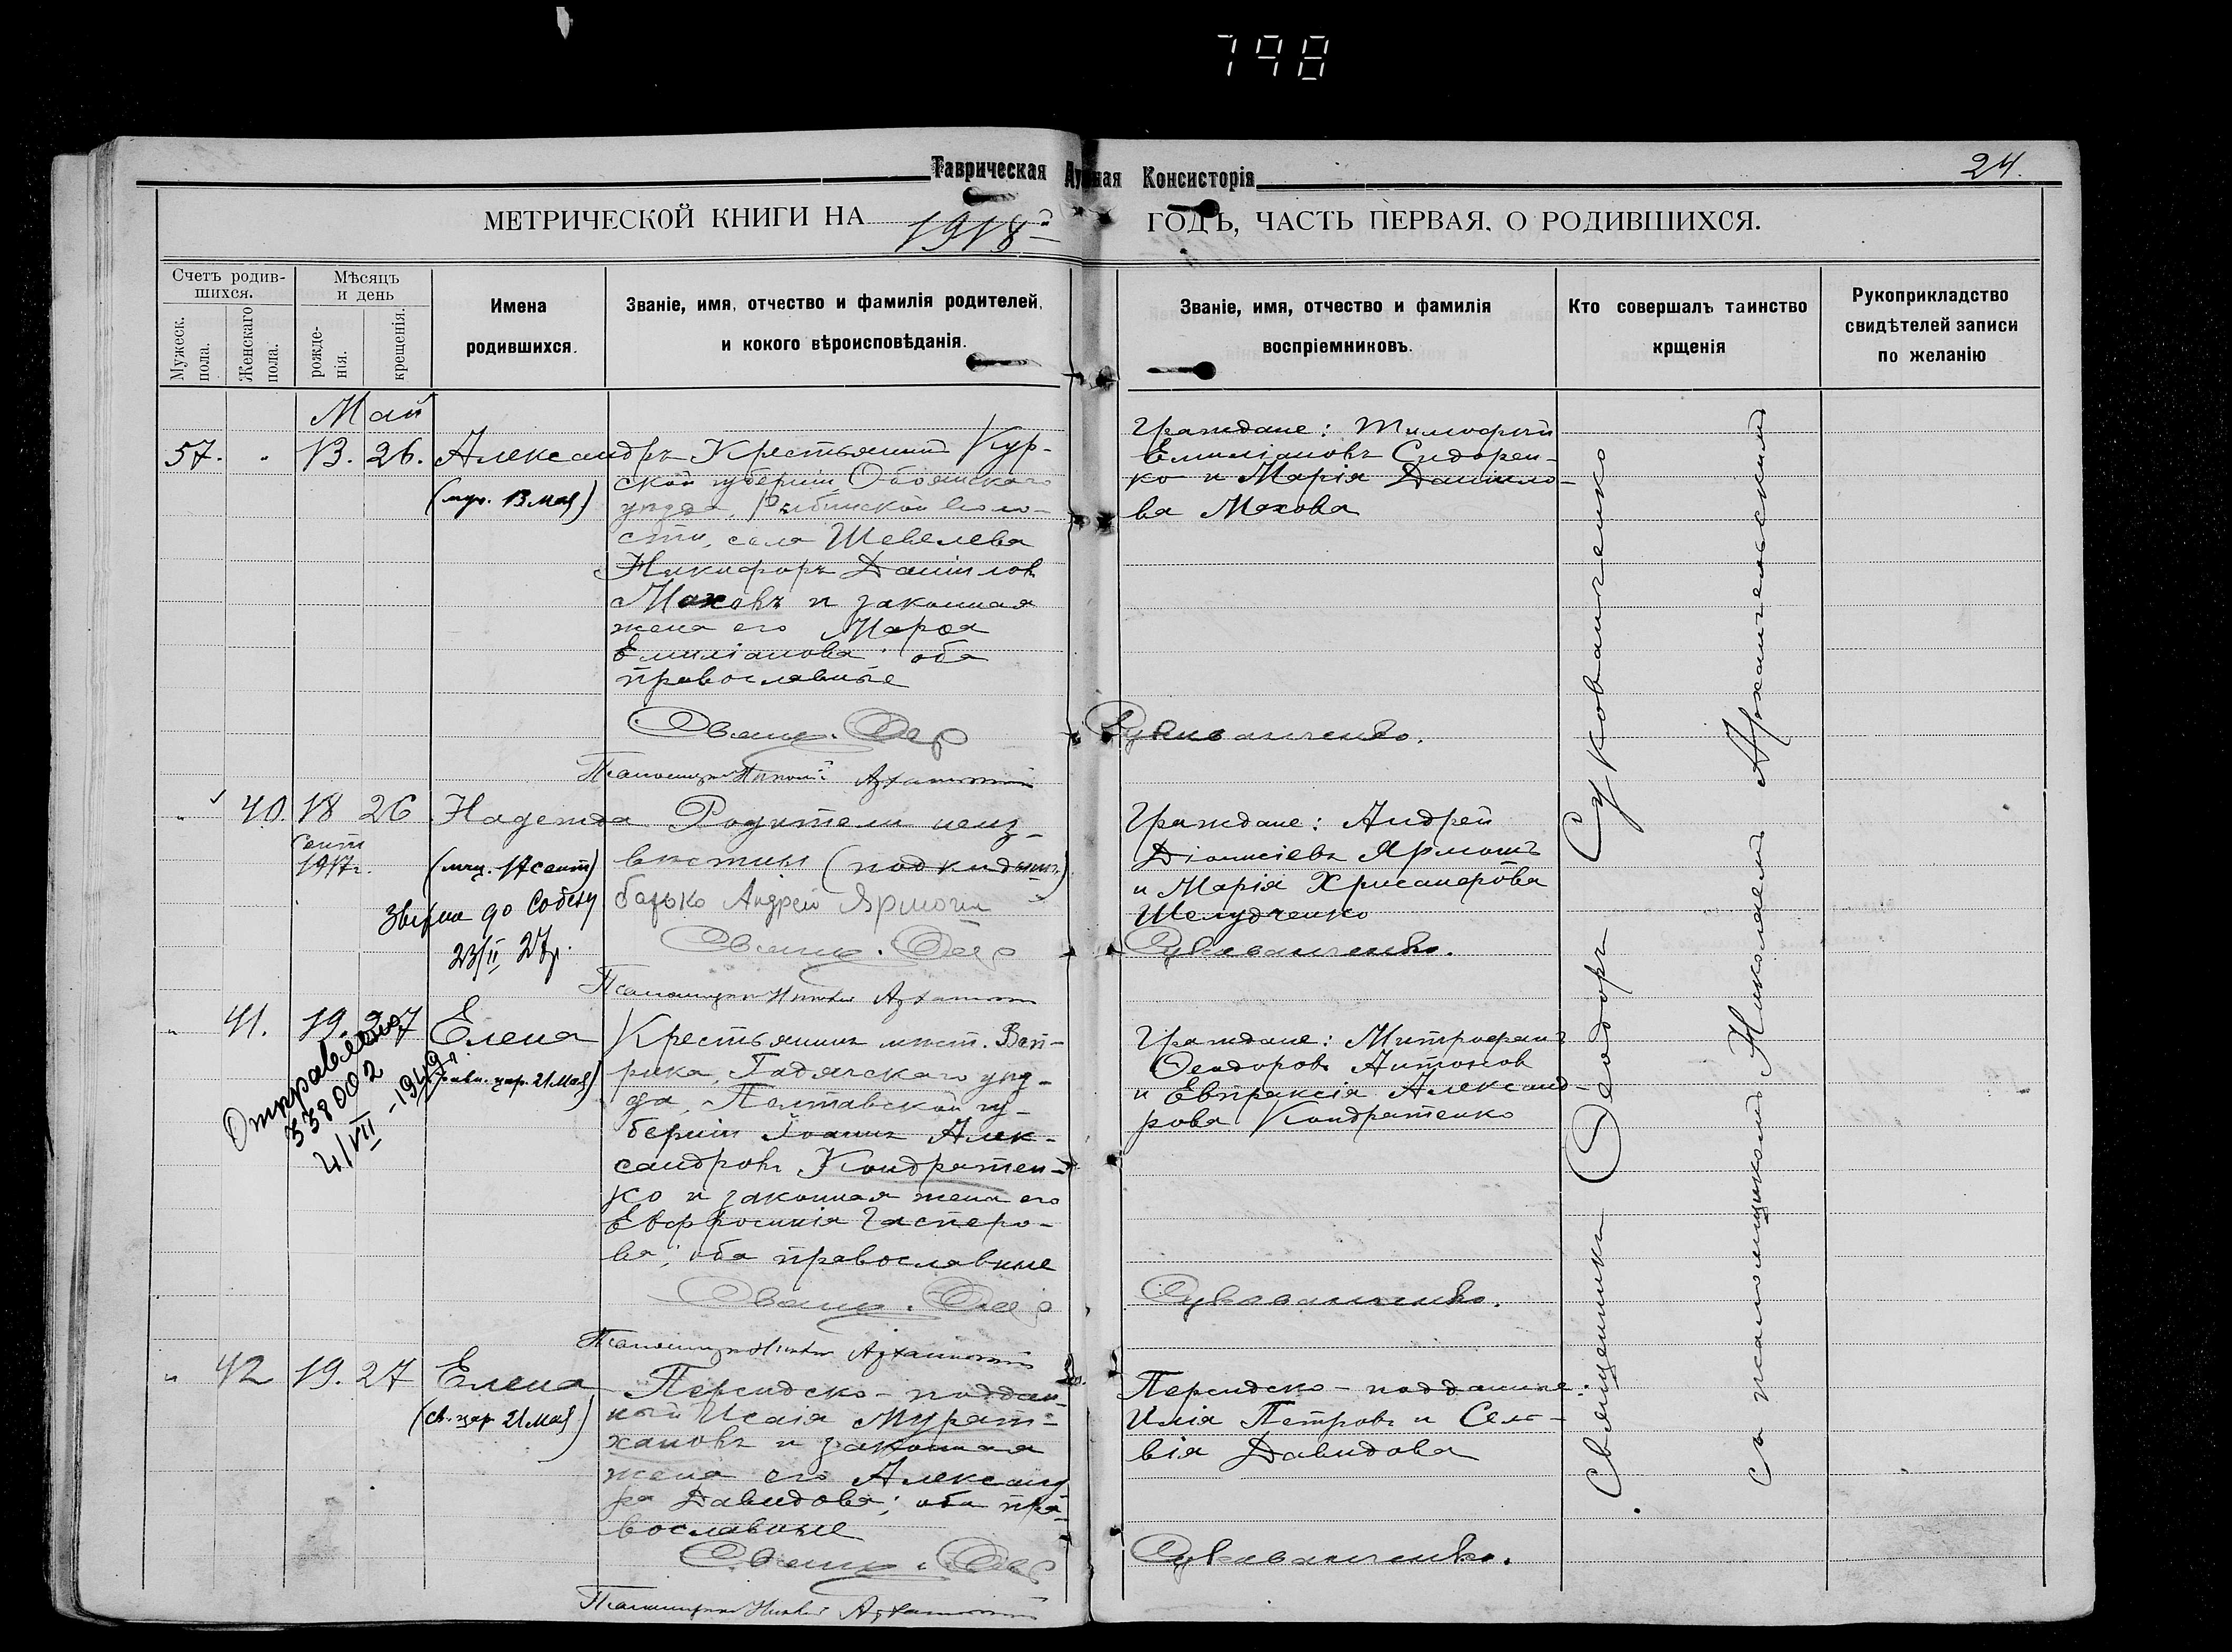 798
Таврическая Духовная Консисторія
24.
МЕТРИЧЕСКОЙ КНИГИ НА 1918й ГОДЪ, ЧАСТЬ ПЕРВАЯ. О РОДИВШИХСЯ.
Счетъ родив-
шихся.
Мужеск.
пола.
Женскаго
пола.
Мѣсяцъ
и день
рожде-
нія.
крещенія.
Имена
родившихся.
Званіе, имя, отчество и фамилія родителей,
и кокого вѣроисповѣданія.
Званіе, имя, отчество и фамилія
воспріемниковъ.
Кто совершалъ таинство
крщенія
Рукоприкладство
свидѣтелей записи
по желанію
Май
57. " 13. 26. Александръ
(муч. 13 мая)
Крестьянинъ Кур-
ской губерніи, Обоянскаго
уѣзда, Рыбинской воло-
сти, села Шевелева
Никифоръ Даніилов
Маховъ и законная
жена его Марѳа
Емиліанова; оба
православные
Свящ. Ѳеод.
Псаломщикъ Николай Архангельскій
Граждане: Тимофей
Емиліановъ Сидорен-
ко и Марія Даниило-
ва Махова
Сукованченко.
" 40. 18 26 Надежда
Сент
1917г.
(муц. 17 сент)
Звірка до Собезу
23/II 27р.
Родители неиз-
вѣстны (подкидышъ)
батько Андрей Ярмош
Свящ. Ѳеод.
Псаломщикъ Николай Архангельскій
Граждане: Андрей
Діонисіевъ Ярмошъ
и Марія Хрисанфова
Шелудченко
Сукованченко.
" 41. 19. 27 Елена
(равн. цар. 21 мая)
Отправлено
338002
4/VII-1949г.
Крестьянинъ мѣст. Веп-
рика, Гадячскаго уѣз-
да, Полтавской гу-
берніи Іоаннъ Алек-
сандровъ Кондратен-
ко и законная жена его
Евфросинія Гасперо-
ва; оба православные
Свящ. Ѳеод.
Псаломщикъ Николай Архангельскій
Граждане: Митрофанъ
Ѳеодоровъ Антонов
и Евпраксія Александ-
рова Кондратенко
Сукованченко.
" 42 19. 27 Елена
(св. цар. 21 мая)
Персидско-поддан-
ный Исаія Мурат-
хановъ и законная
жена его Александ-
ра Давидова; оба пра-
вославные
Свящ. Ѳеод.
Псаломщикъ Николай Архангельскій
Персидско-подданные:
Илія Петровъ и Сель-
вія Давидова
Сукованченко.
Священникъ Ѳеодоръ Сукованченко
съ псаломщикомъ Николаемъ Архангельскимъ